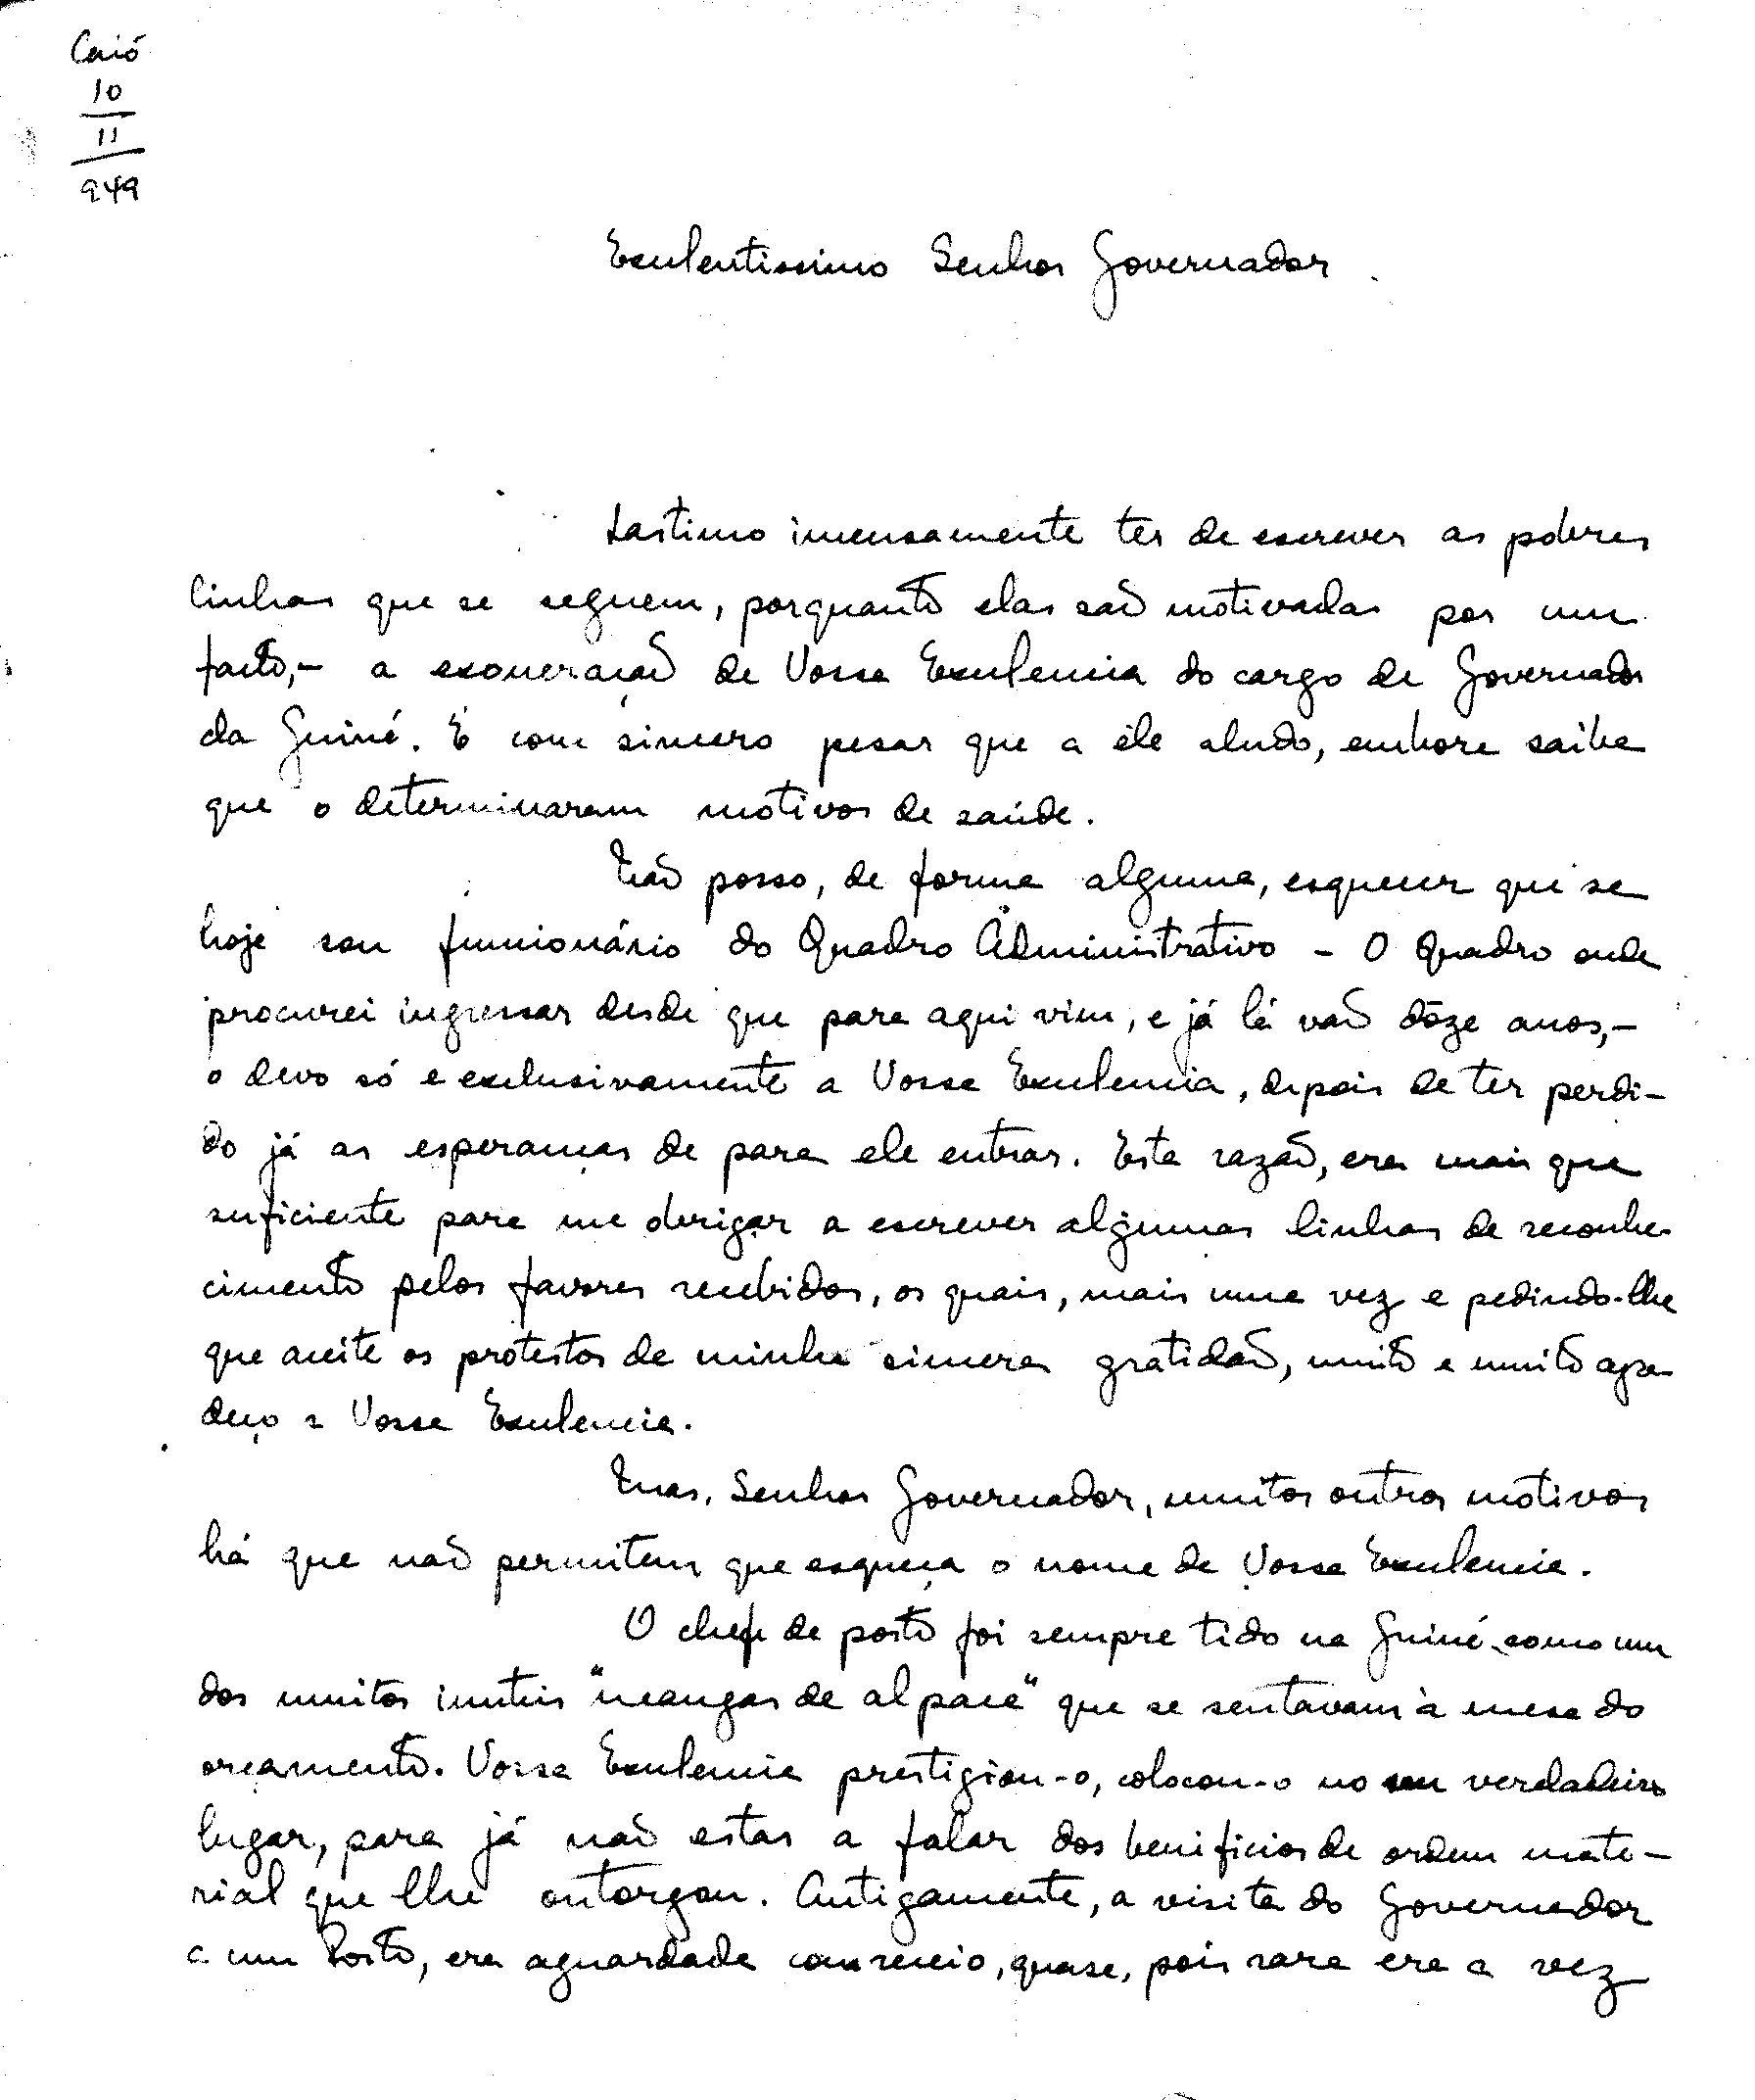 Caió
10
11
949
Excelentissimo Senhor Governador
Lastimo imensamente ter de escrever as pobres
linhas que se seguem, porquanto elas são motivadas por um
facto,- a exoneração de Vossa Excelencia do cargo de Governador
da Guiné. É com sincero pesar que a êle aludo, embora saiba
que o determinaram motivos de saúde.
Não posso, de forma alguma, esquecer que se
hoje sou funcionário do Quadro Administrativo - O Quadro onde
procurei ingressar desde que para aqui vim, e já lá vão dôze anos,-
o devo só e exclusivamente a Vossa Excelencia, depois de ter perdi-
do já as esperanças de para ele entrar. Esta razão, era mais que
suficiente para me obrigar a escrever algumas linhas de reconhe-
cimento pelos favores recebidos, os quais, mais uma vez e pedindo-lhe
que aceite os protestos de minha sincera gratidão, muito e muito agra-
deço a Vossa Excelencia.
Mas, Senhor Governador, muitos outros motivos
há que não permitem que esqueça o nome de Vossa Excelencia.
O chefe de posto foi sempre tido na Guiné como um
dos muitos inuteis "mangas de alpaca" que se sentavam à mesa do
orçamento. Vossa Excelencia prestigiou-o, colocou-o no seu verdadeiro
lugar, para já não estar a falar dos beneficios de ordem mate-
rial que lhe outorgou. Antigamente, a visita do Governador
a um Posto, era aguardada com receio, quase, pois rara era a vez